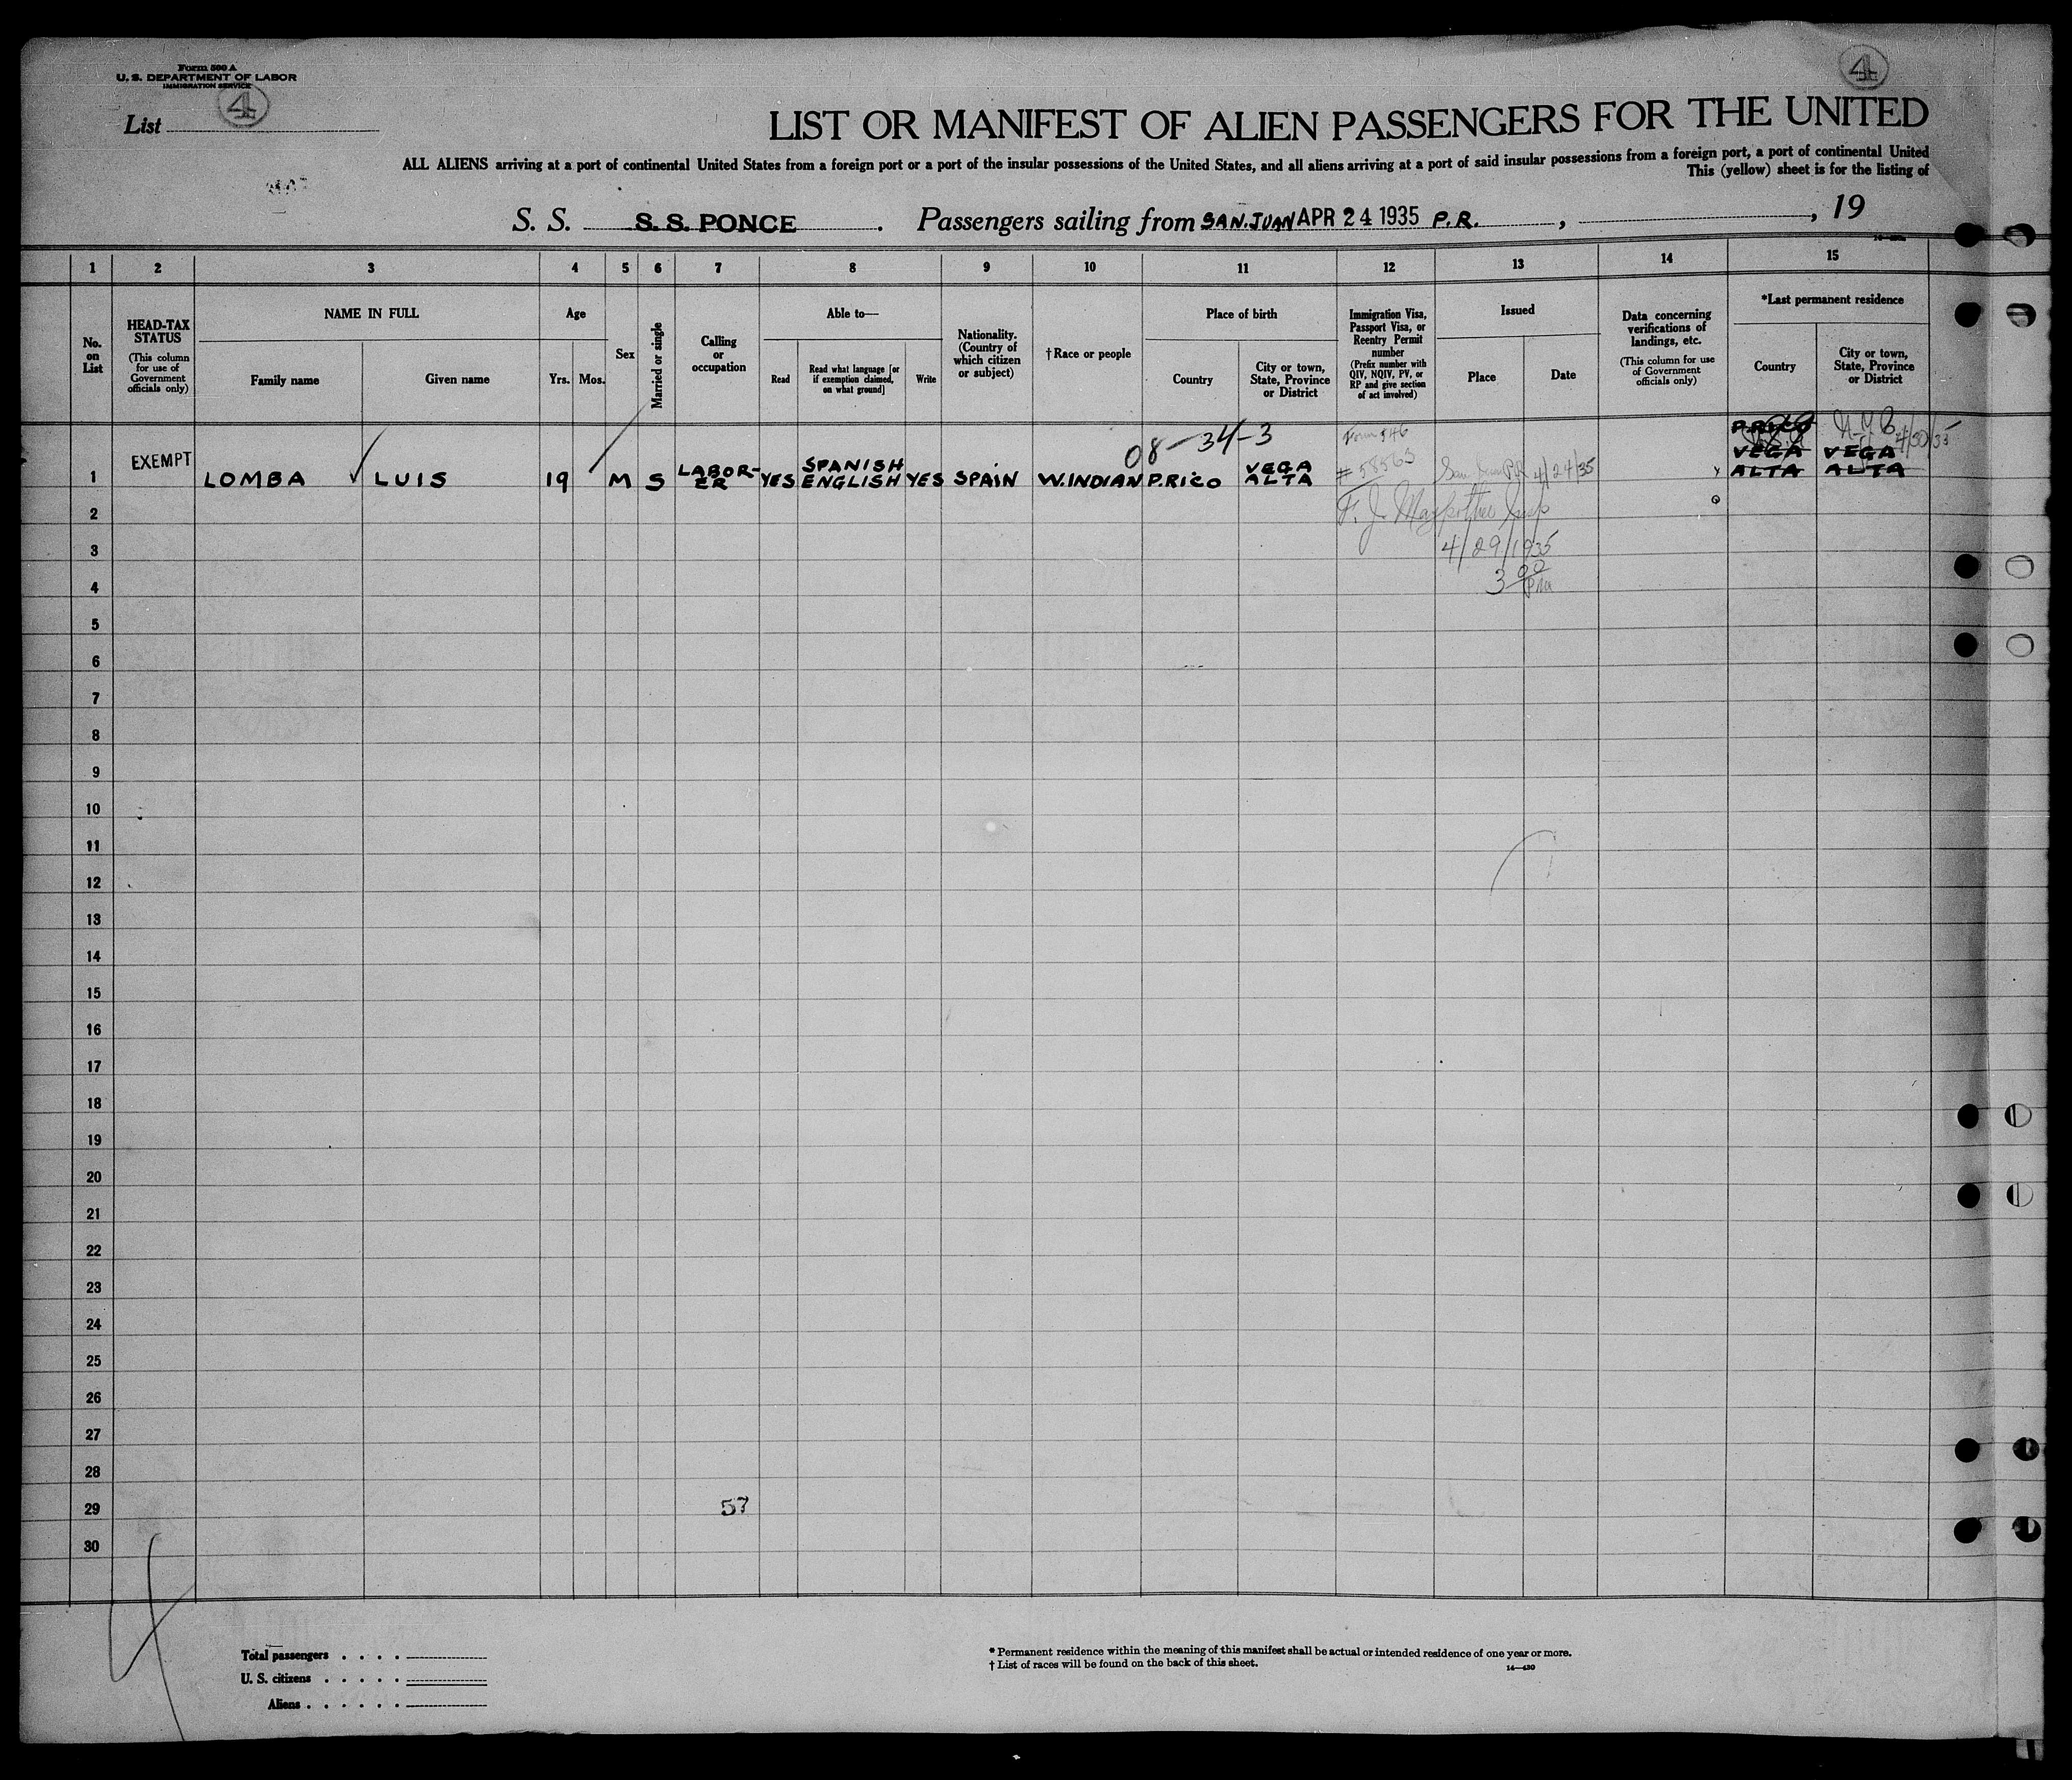 Form 500 A
U. S. DEPARTMENT OF LABOR
IMMIGRATION SERVICE
4
4
List
LIST OR MANIFEST OF ALIEN PASSENGERS FOR THE UNITED
ALL ALIENS arriving at a port of continental United States from a foreign port or a port of the insular possessions of the United States, and all aliens arriving at a port of said insular possessions from a foreign port, a port of continental United
This (yellow) sheet is for the listing of
S. S. S. S. PONCE . Passengers sailing from SAN. JUAN APR 24 1935 P.R. , , 19
1 2 3 4 5 6 7 8 9 10 11 12 13 14 15
No. on List
HEAD-TAX STATUS
(This column for use of Government officials only)
NAME IN FULL
Family name
Given name
Age
Yrs. Mos.
Sex
Married or single
Calling or occupation
Able to—
Read
Read what language [or if exemption claimed, on what ground]
Write
Nationality. (Country of which citizen or subject)
† Race or people
Place of birth
Country
City or town, State, Province or District
Immigration Visa, Passport Visa, or Reentry Permit number
(Prefix number with QIV, NQIV, PV, or RP and give section of act involved)
Issued
Place
Date
Data concerning verifications of landings, etc.
(This column for use of Government officials only)
*Last permanent residence
Country
City or town, State, Province or District
08-34-3
Form 546
P.RICO
4/30/35
1 EXEMPT LOMBA LUIS 19 M S LABOR-ER YES SPANISH ENGLISH YES SPAIN W.INDIAN P.RICO VEGA ALTA # 58563 San Juan PR 4/24/35 VEGA ALTA VEGA ALTA
2
3 4/29/1935
4 3 00 PM
5
6
7
8
9
10
11
12
13
14
15
16
17
18
19
20
21
22
23
24
25
26
27
28
29 57
30
4
Total passengers . . . .
U. S. citizens . . . . .
Aliens . . . . . .
* Permanent residence within the meaning of this manifest shall be actual or intended residence of one year or more.
† List of races will be found on the back of this sheet.
14—430